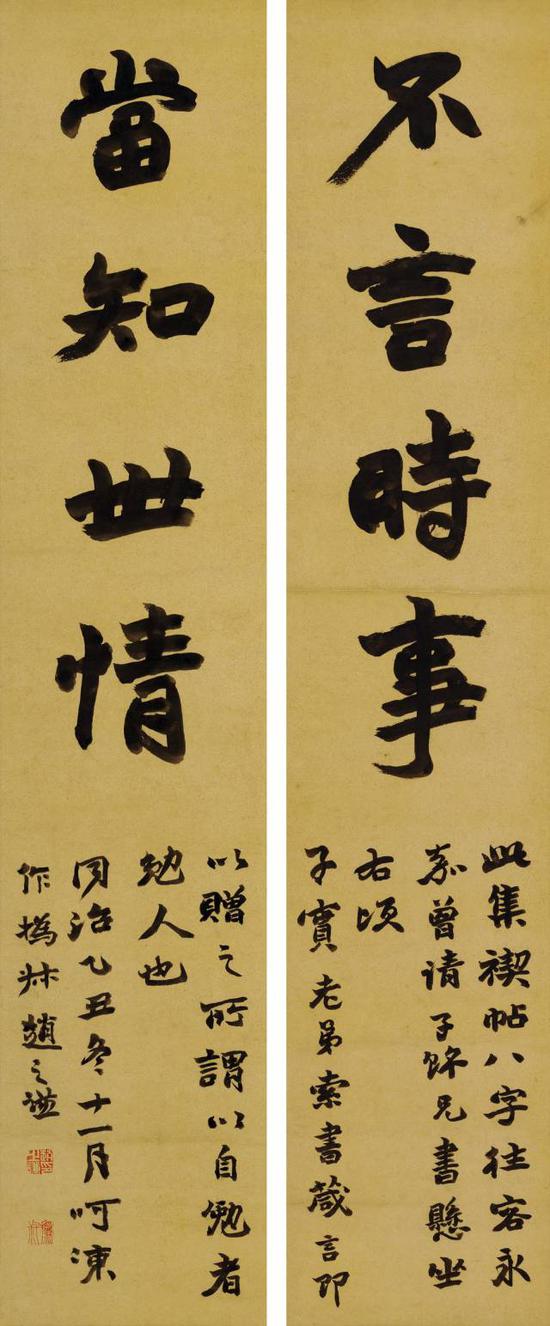 不言時事
此集禊帖八字往客永
嘉曾請子縣兄書懸坐
右頃
子賓老弟索書箴言即
當知世情
以贈之所謂以自勉者
勉人也
同治乙丑冬十一月呵凍
作撝叔趙之謙